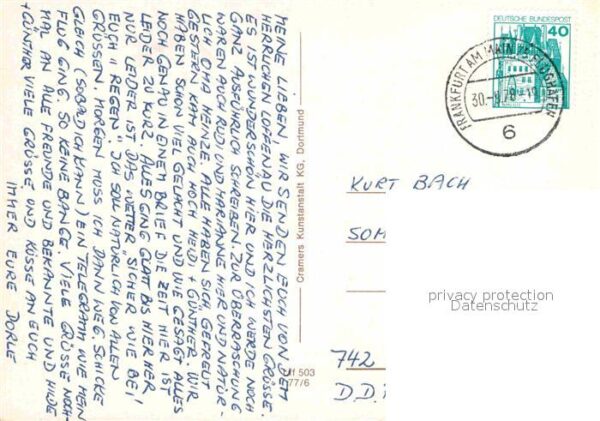 MEINE LIEBEN, WIR SENDEN EUCH VON DEM
HERRLICHEN LOFFENAU DIE HERZLICHSTEN GRÜSSE.
ES IST WUNDERSCHÖN HIER UND ICH WERDE NOCH
GANZ AUSFÜHRLICH SCHREIBEN. ZUR ÜBERRASCHUNG
WAREN AUCH RUDI UND MARIANNE HIER UND NATÜR-
LICH OMA HEINZE. ALLE HABEN SICH GEFREUT
GESTERN KAM AUCH NOCH HEIDI + GÜNTHER. WIR
HABEN SCHON VIEL GELACHT UND WIE GESAGT ALLES
NOCH GENAU IN EINEM BRIEF DIE ZEIT HIER IST
LEIDER ZU KURZ. ALLES GING GLATT BIS HIERHER,
NUR LEIDER IST DAS WETTER SICHER WIE BEI
EUCH "REGEN". ICH SOLL NATÜRLICH VON ALLEN
GRÜSSEN. MORGEN MUSS ICH DANN WEG. SCHICKE
GLEICH (SOBALD ICH KANN) EIN TELEGRAMM WIE MEIN
FLUG GING. SO KEINE BANGE. VIELE GRÜSSE NOCH-
MAL AN ALLE FREUNDE UND BEKANNTE UND HILDE
+ GÜNTHER VIELE GRÜSSE UND KÜSSE AN EUCH
IMMER EURE DORLE
Cramers Kunstanstalt KG, Dortmund
503
77/6
DEUTSCHE BUNDESPOST
40
FRANKFURT AM MAIN FLUGHAFEN
6
KURT BACH
SOM
742
D.D.
privacy protection
Datenschutz